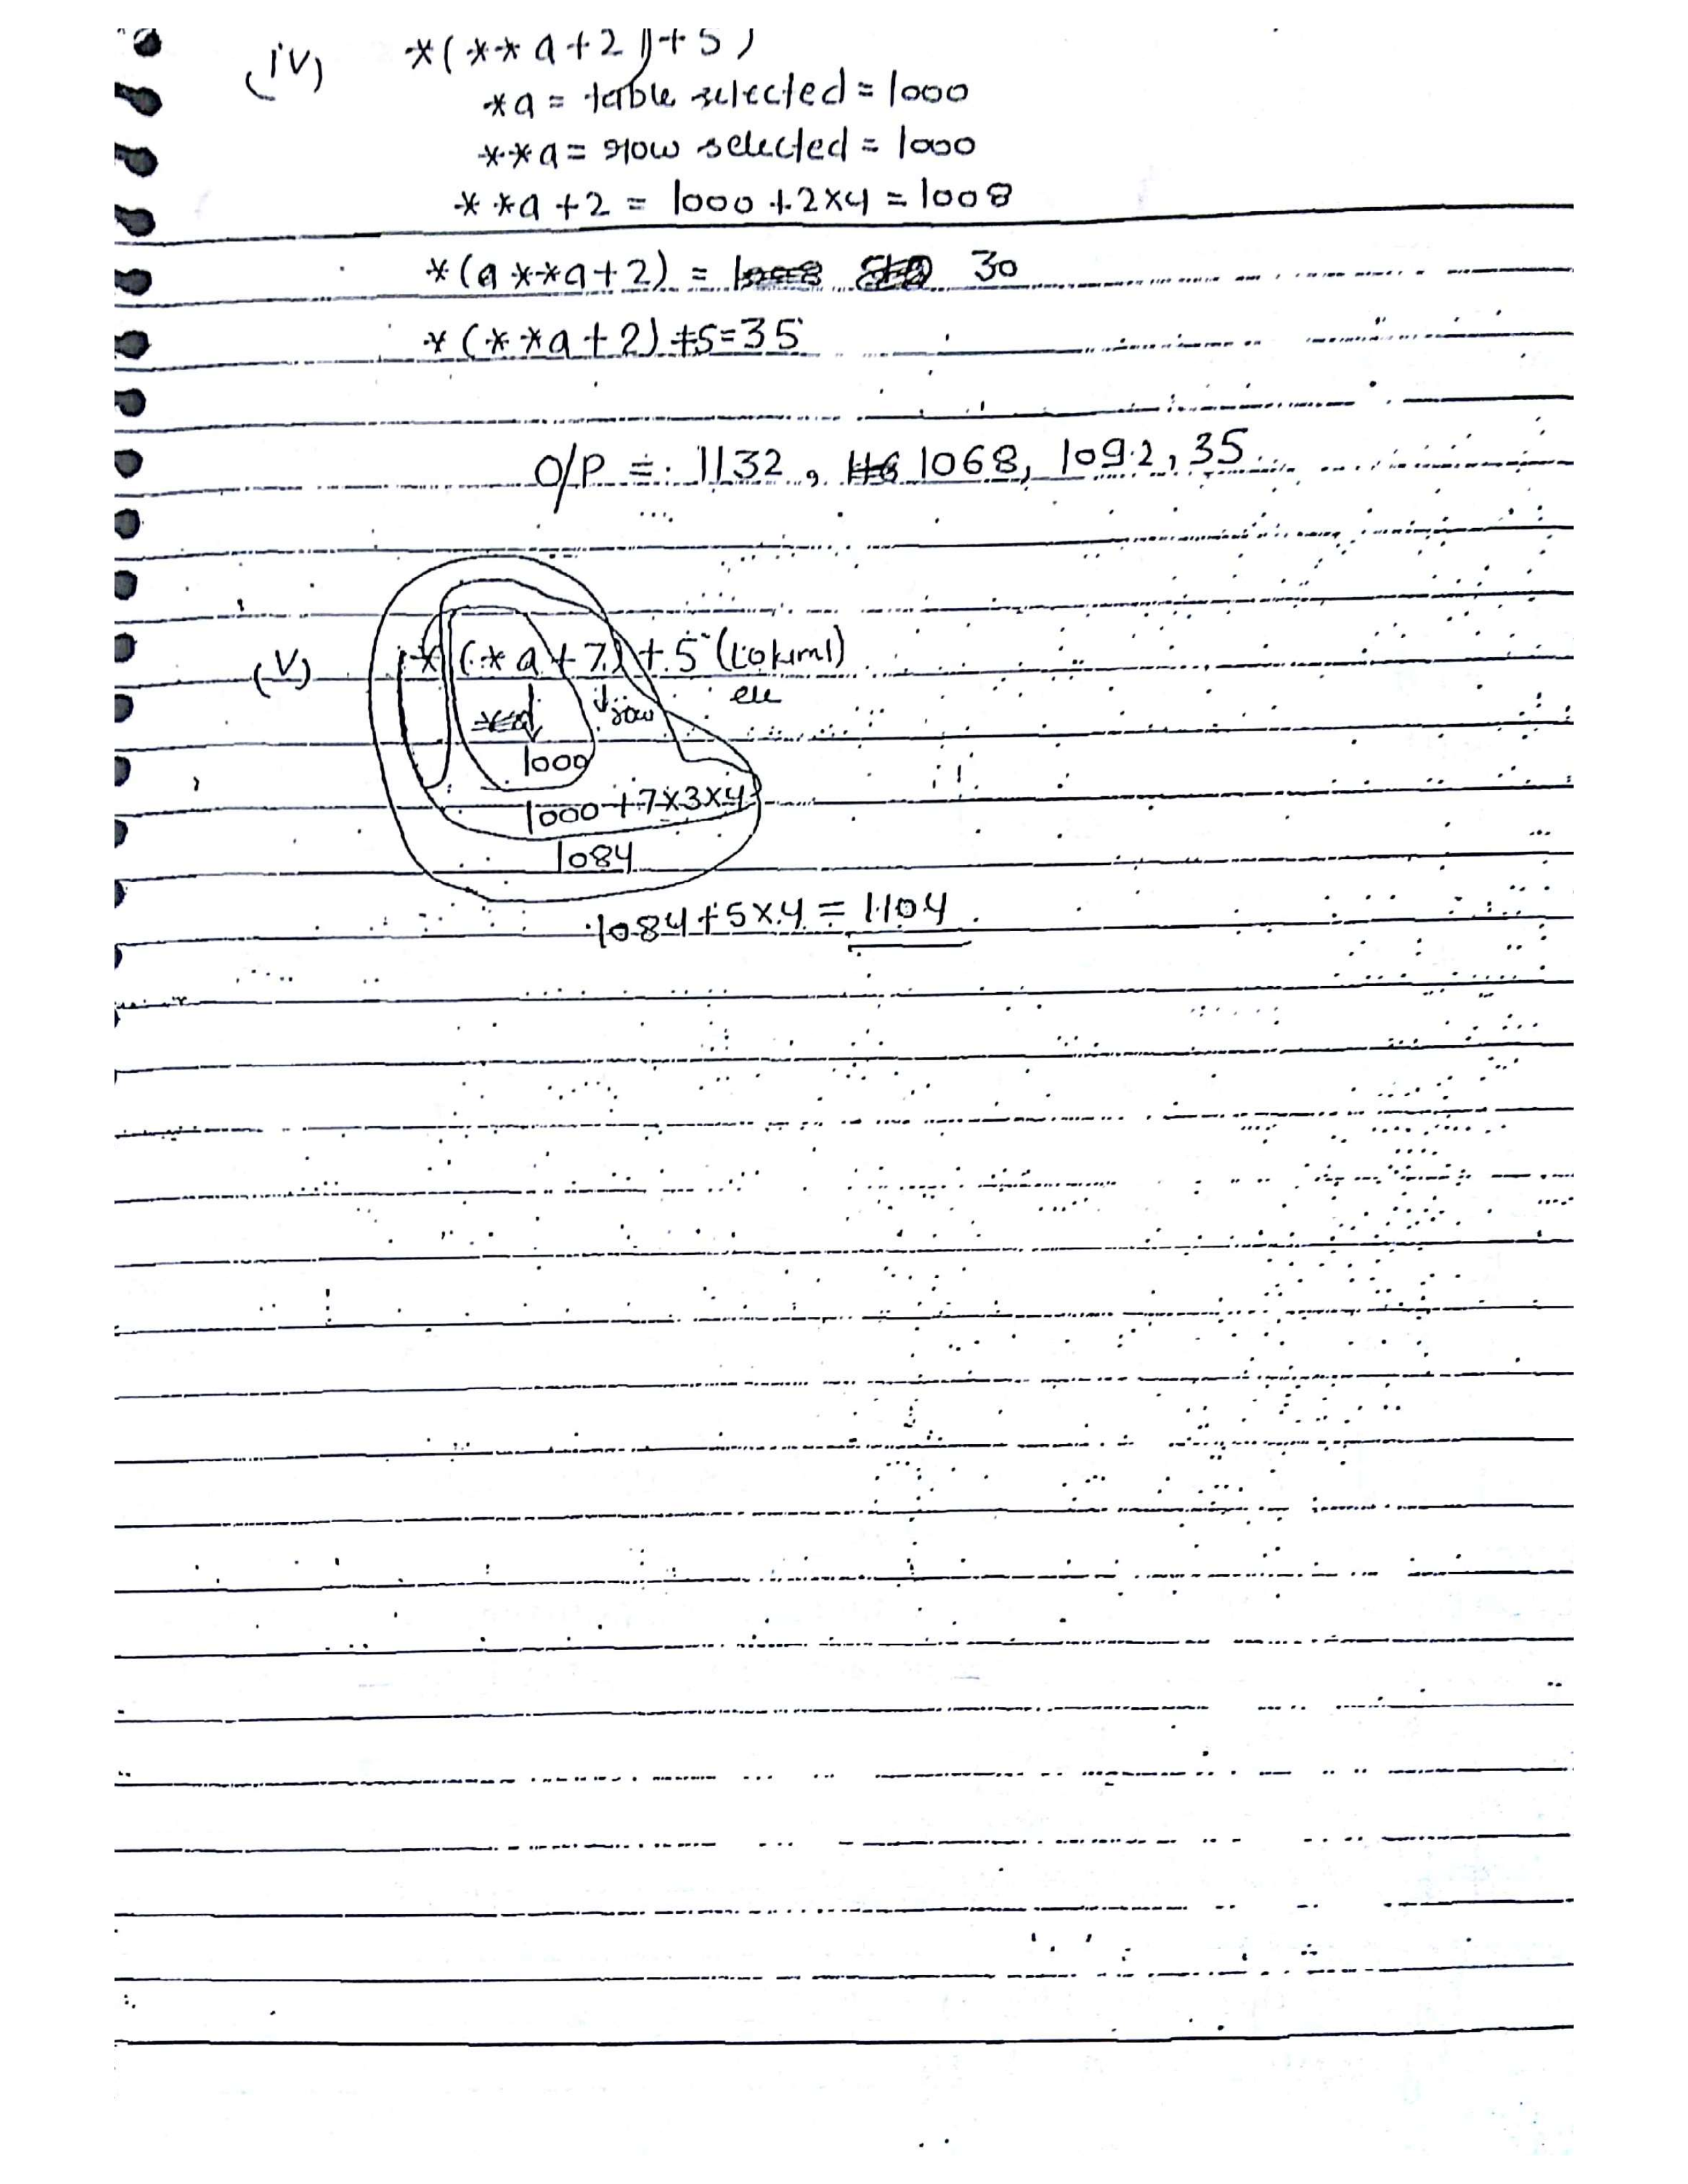 (iv) *(**a+2)+5)
*a = table selected = 1000
**a = row selected = 1000
**a+2 = 1000+2×4 = 1008
*(a**a+2) = 30
*(**a+2)+5=35
O/P = 1132, 1068, 1092, 35
(v) *(*a+7)+5
row ele
1000
1000+7×3×4
1084
1084+5×4 = 1104